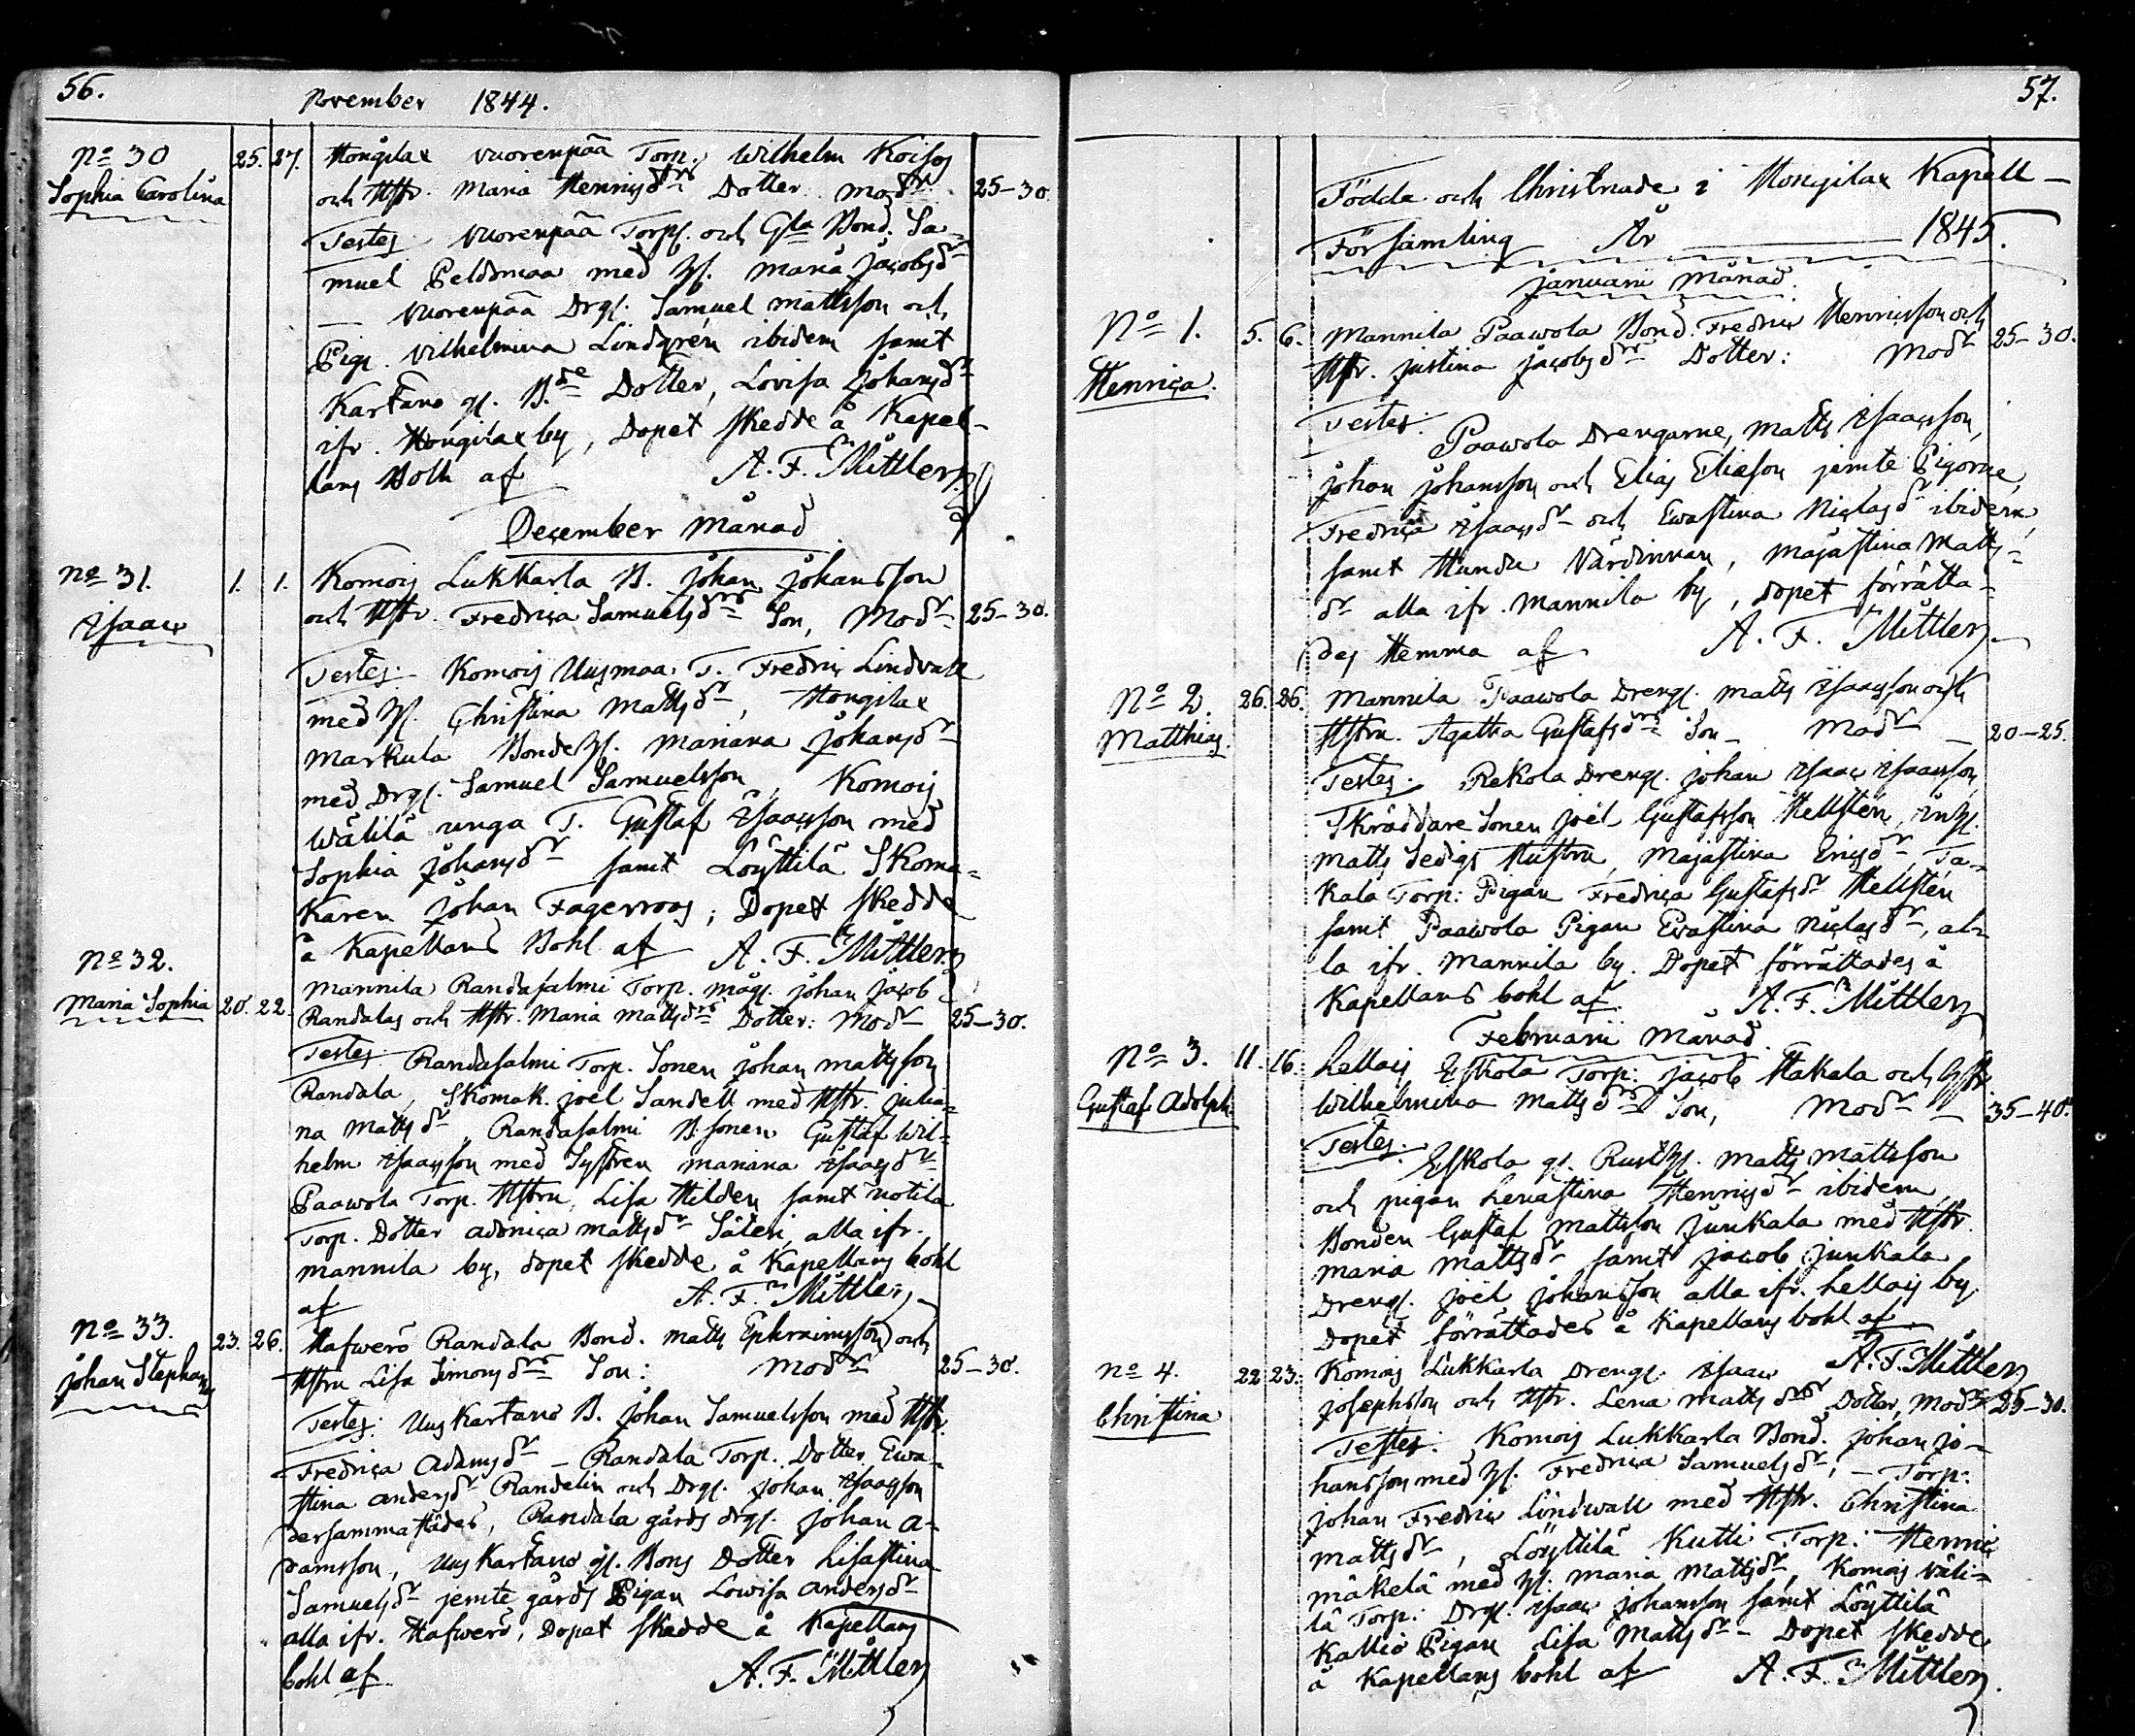 56.
November 1844.
No 30 25. 27. Hongilax Vuorenpää Torp. Wilhelm Koisos
Sophia Carolina och Hstr. Maria Henricsdrs Dotter. Modr 25-30.
Testes: Vuorenpää Torps. och Gla Bond. Sa-
muel Peldomaa med H. Maria Jacobsdr
— Vuorenpää Drgs. Samuel Mattsson och
Pigs. Vilhelmina Lindgrén ibidem samt
Kartano gs. B.de Dotter, Lovisa Johansdr
ifr. Hongilax by, Dopet skedde å Kapel-
lans Bolh af A. F. Mittler
December Månad
No 31. 1. 1. Komois Lukkarla B. Johan Johansson
Isaac och Hstr. Fredrica Samuelsdrs Son, Modr 25-30.
Testes: Komois Uusmaa T. Fredric Lindvall
med H. Christina Mattsdr, Hongilax
Markula Bonde H. Mariana Johansdr
med Drgs. Samuel Samuelsson, Komois
Wälilä unga T. Gustaf Isaacsson med
Sophia Johansdr samt Löyttilä Skoma-
karen Johan Fagerroos; Dopet skedde
å Kapellans Bohl af A. F. Mittler
No 32. Mannila Randasalmi Torp. mågs. Johan Jacob
Maria Sophia 20. 22. Randalas och Hstr. Maria Mattsdrs Dotter: Modr 25-30.
Testes: Randasalmi Torp. Sonen Johan Mattsson
Randala, Skomak. Joel Sandell med Hstr. Julia-
na Mattsdr, Randasalmi B. sonen Gustaf Wil-
helm Isaacsson med Systren Mariana Isaacsdr
Paawola Torp. Hstru, Lisa Hilden samt Uotila
Torp. Dotter Adrica Mattsdr Säteri, alla ifr.
Mannila by, dopet skedde å Kapellans bohl
af A. F. Mittler
No 33. 23. 26. Hafwerö Randala Bond. Matts Ephraimsson och
Johan Stephanus Hstru Lisa Simonsdrs Son: Modr 25-30.
Testes: Uuskartano B. Johan Samuelsson med Hstr.
Fredrica Adamsdr — Randala Torp. Dotter Ewa-
stina Andersdr Randelin och Drgs. Johan Isaacsson
dersammastädes, Randala gårds drgs. Johan A-
damsson, Uuskartano gs. Bons Dotter Lisastina
Samuelsdr jemte gårds Pigan Lowisa Andersdr
alla ifr. Hafwerö, Dopet skedde å Kapellans
bohl af A. F. Mittler
57.
Födda och Christnade i Hongilax Kapell-
Församling År 1845.
Januarii Månad.
No 1. 5. 6. Mannila Paawola Bond. Fredric Henricsson och 25-30.
Henrica. Hstr. Justina Jacobsdrs Dotter: Modr
Testes: Paawola Drengarne, Matts Isaacsson,
Johan Johansson och Elias Eliasson jemte Pigorne,
Fredrica Isaacsdr och Ewastina Niclasdr ibidem,
samt Hundu Värdinnan, Majastina Matts-
dr alla ifr. Mannila by, dopet förrätta-
des Hemma af A. F. Mittler
No 2. 26. 26. Mannila Paawola Drengs. Matts Isaacsson och
Matthias. Hstru. Agatha Gustafsdrs Son — Modr — 20-25.
Testes: Rekola Drengs. Johan Isaac Isaacsson,
Skräddare Sonen Joel Gustafsson Hellsten,
Matts Sedigs Hustru, Majastina Ericsdr, Ta-
kala Torp: Pigan Fredrica Gustafsdr Hellsten
samt Paawola Pigan Ewastina Niclasdr, al-
la ifr. Mannila by. Dopet förrättades å
Kapellans bohl af A. F. Mittler
Februarii Månad.
No 3. 11. 16. Lellais Eskola Torp: Jacob Hakala och Hstr.
Gustaf Adolph. Wilhelmina Mattsdrs Son, Modr — 35-40.
Testes: Eskola gs. Rusth. Matts Mattsson
och pigan Lenastina Henricsdr ibidem,
Bonden Gustaf Mattsson Junkala med Hstr.
Maria Mattsdr samt Jacob Junkala
Drengs. Joel Johansson alla ifr. Lellais by
Dopet förrättades å Kapellans bohl af
A. F. Mittler
No 4. 22 23. Komois Lukkarla Drengs. Isaac
Christina Josephsson och Hstr. Lena Mattsdrs Dotter, Modr 25-30.
Testes: Komois Lukkarla Bond. Johan Jo-
hansson med H. Fredrica Samuelsdr, — Torp:
Johan Fredric Lindwall med Hstr. Christina
Mattsdr, Löyttilä Kutti Torp: Henric
Mäkelä med H. Maria Mattsdr, Komois Väli-
lä Torp: Drgs. Isaac Johansson samt Löyttilä
Kallio Pigan Lisa Mattsdr — Dopet skedde
å Kapellans bohl af A. F. Mittler.